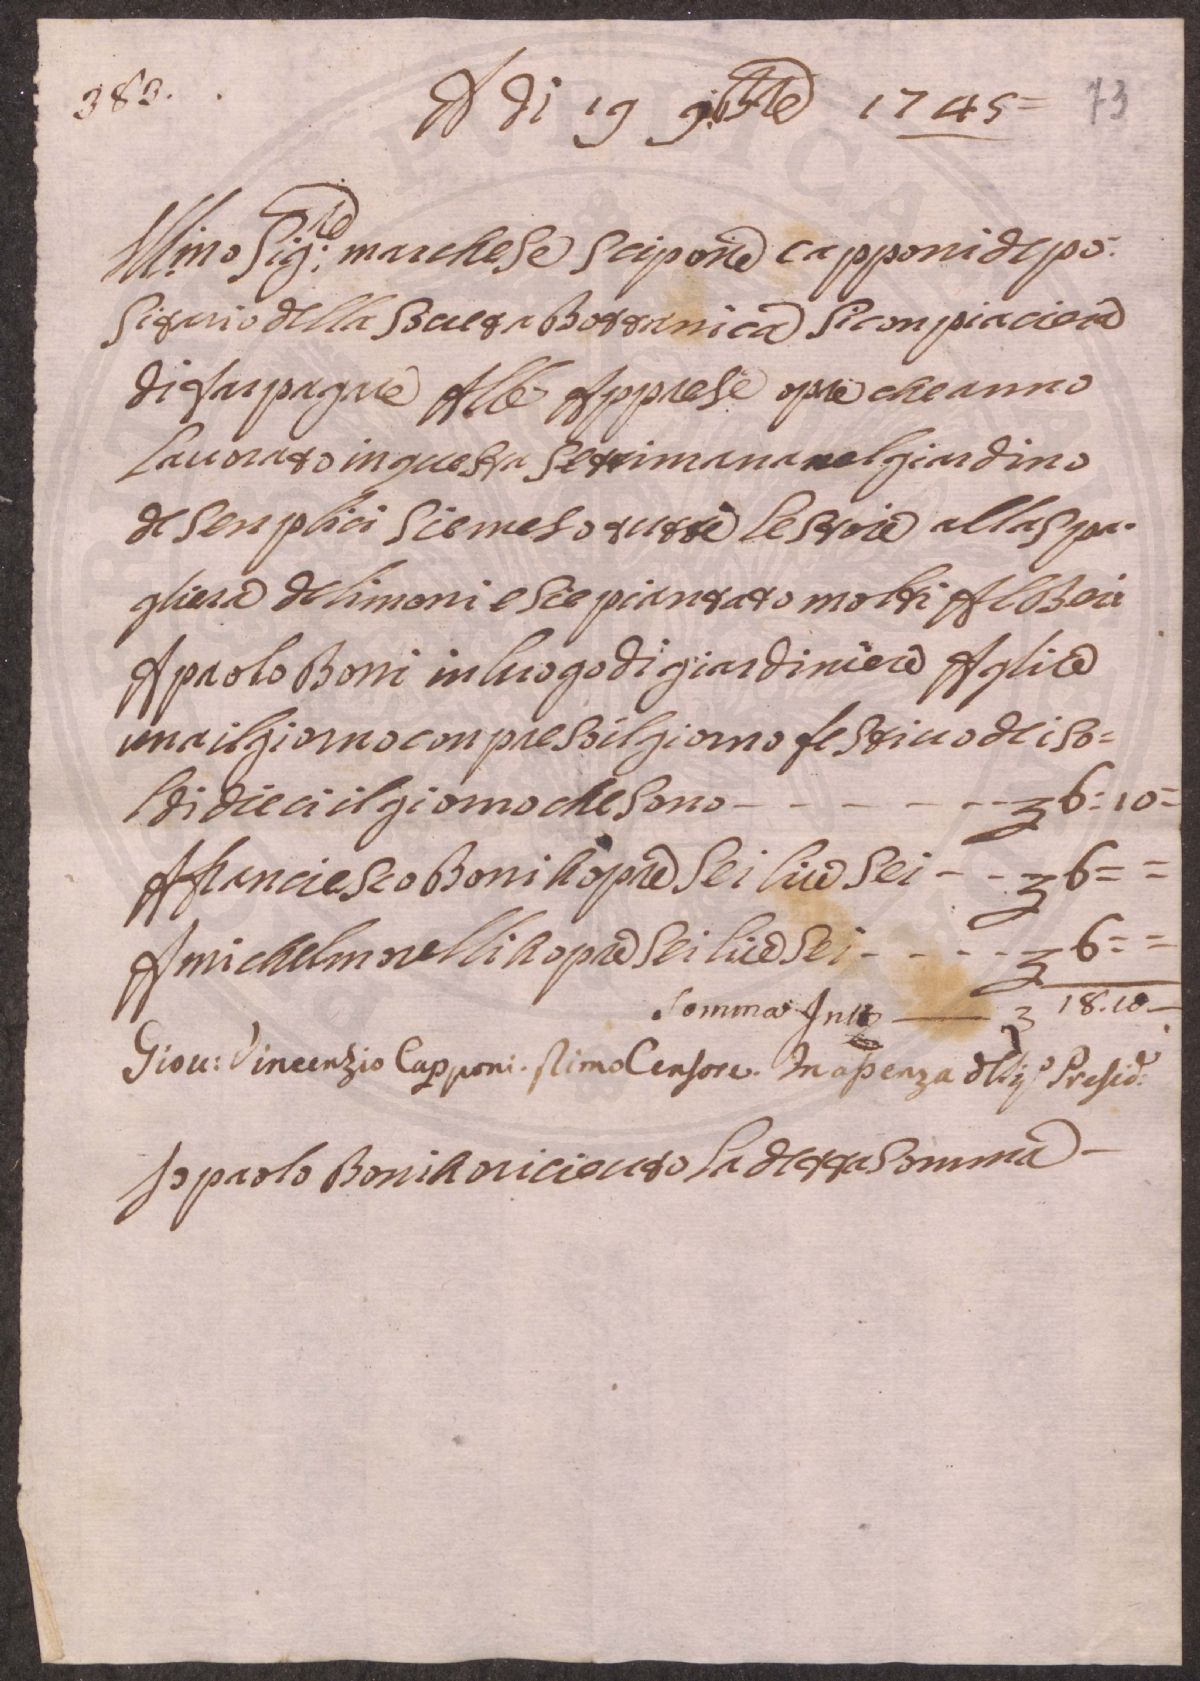 383.
A di 19 9bre 1745=
73
Illmo Sig:re marchese Scipone capponi depo:
Sitario della Scieta Bottanica Si conpiaciera
di far pagare Alle Apprese opre che anno
lauorato in questa Settimana nel giardino
de Senplici Sie meso tutte le Stoie alla Spa=
gliera de limoni e Sie piantato molti Alberi
A paolo Boni in luogo di giardiniere A glire
una il giorno conpreso il giorno festiuo dei so=
ldi dieci il giorno che sono - - - - - - £ 6:10=
A franciesco Boni ho opre Sei lire Sei - - - £ 6= =
A michel morelli ho opre Sei lire Sei - - - - - £ 6= =
Somma In tto —— £ 18.10—
Giou: Vincenzio Capponi. Primo Censore. In assenza del Sig.e Presid:e
Io paolo Boni ho riceuto la detta Somma —